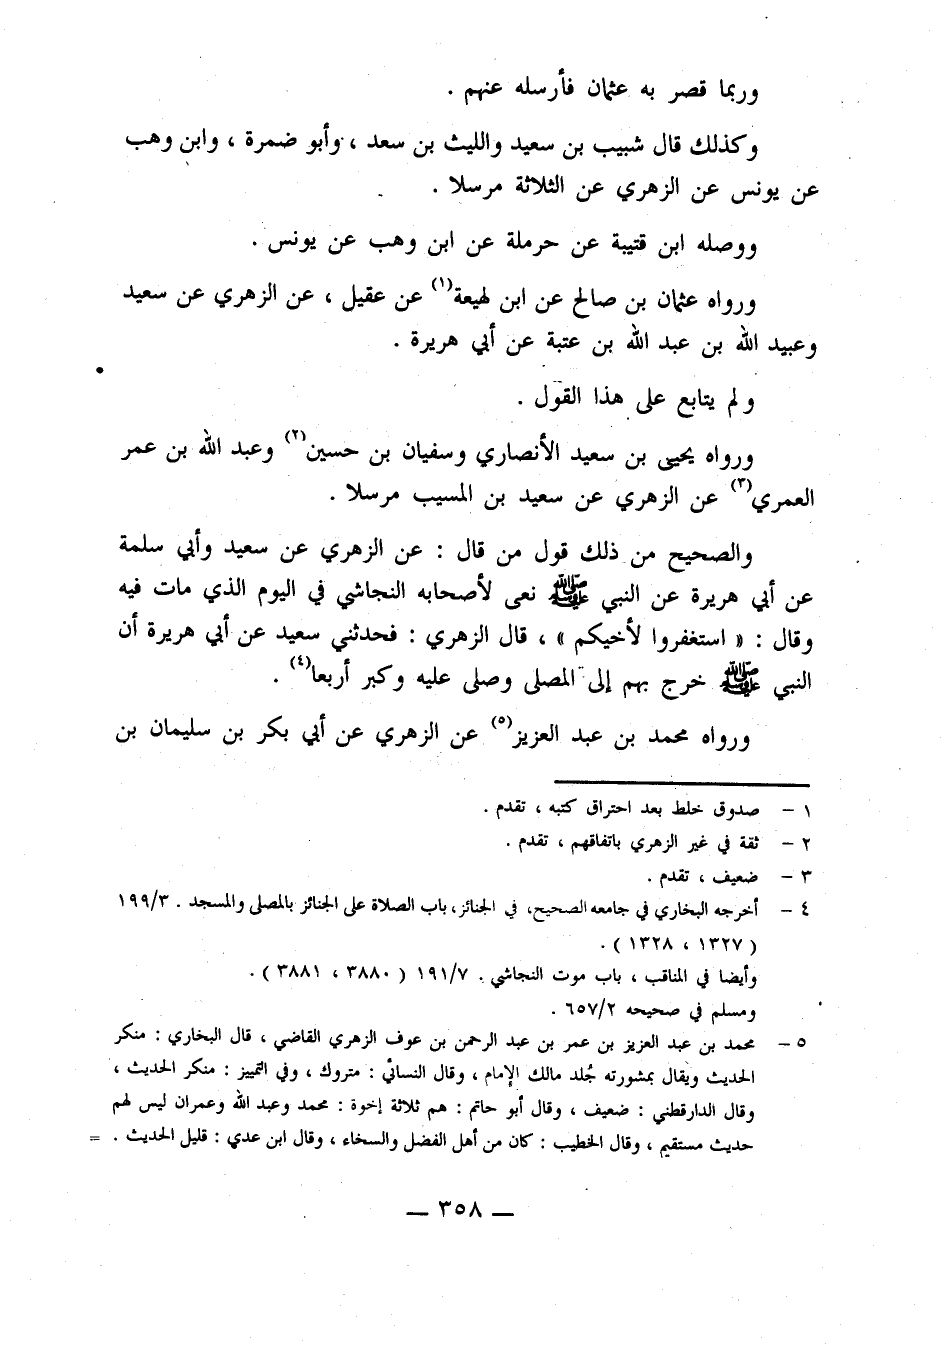 وربما قصر به عثمان فأرسله عنهم .
وكذلك قال شبيب بن سعيد والليث بن سعد ، وأبو ضمرة ، وابن وهب
عن يونس عن الزهري عن الثلاثة مرسلا .
ووصله ابن قتيبة عن حرملة عن ابن وهب عن يونس .
ورواه عثمان بن صالح عن ابن لهيعة(١) عن عقيل ، عن الزهري عن سعيد
وعبيد الله بن عبد الله بن عتبة عن أبي هريرة .
ولم يتابع على هذا القول .
ورواه يحيى بن سعيد الأنصاري وسفيان بن حسين(٢) وعبد الله بن عمر
العمري(٣) عن الزهري عن سعيد بن المسيب مرسلا .
والصحيح من ذلك قول من قال : عن الزهري عن سعيد وأبي سلمة
عن أبي هريرة عن النبي ﷺ نعى لأصحابه النجاشي في اليوم الذي مات فيه
وقال : « استغفروا لأخيكم » ، قال الزهري : فحدثني سعيد عن أبي هريرة أن
النبي ﷺ خرج بهم إلى المصلى وصلى عليه وكبر أربعا(٤) .
ورواه محمد بن عبد العزيز(٥) عن الزهري عن أبي بكر بن سليمان بن
١ – صدوق خلط بعد احتراق كتبه ، تقدم .
٢ – ثقة في غير الزهري باتفاقهم ، تقدم .
٣ – ضعيف ، تقدم .
٤ – أخرجه البخاري في جامعه الصحيح، في الجنائز، باب الصلاة على الجنائز بالمصلى والمسجد . ١٩٩/٣
( ١٣٢٧ ، ١٣٢٨ ) .
وأيضا في المناقب ، باب موت النجاشي . ١٩١/٧ ( ٣٨٨٠ ، ٣٨٨١ ) .
ومسلم في صحيحه ٦٥٧/٢ .
٥ – محمد بن عبد العزيز بن عمر بن عبد الرحمن بن عوف الزهري القاضي ، قال البخاري : منكر
الحديث ويقال بمشورته جُلد مالك الإمام ، وقال النسائي : متروك ، وفي التمييز : منكر الحديث ،
وقال الدارقطني : ضعيف ، وقال أبو حاتم : هم ثلاثة إخوة : محمد وعبد الله وعمران ليس لهم
حديث مستقيم ، وقال الخطيب : كان من أهل الفضل والسخاء ، وقال ابن عدي : قليل الحديث . =
— ٣٥٨ —